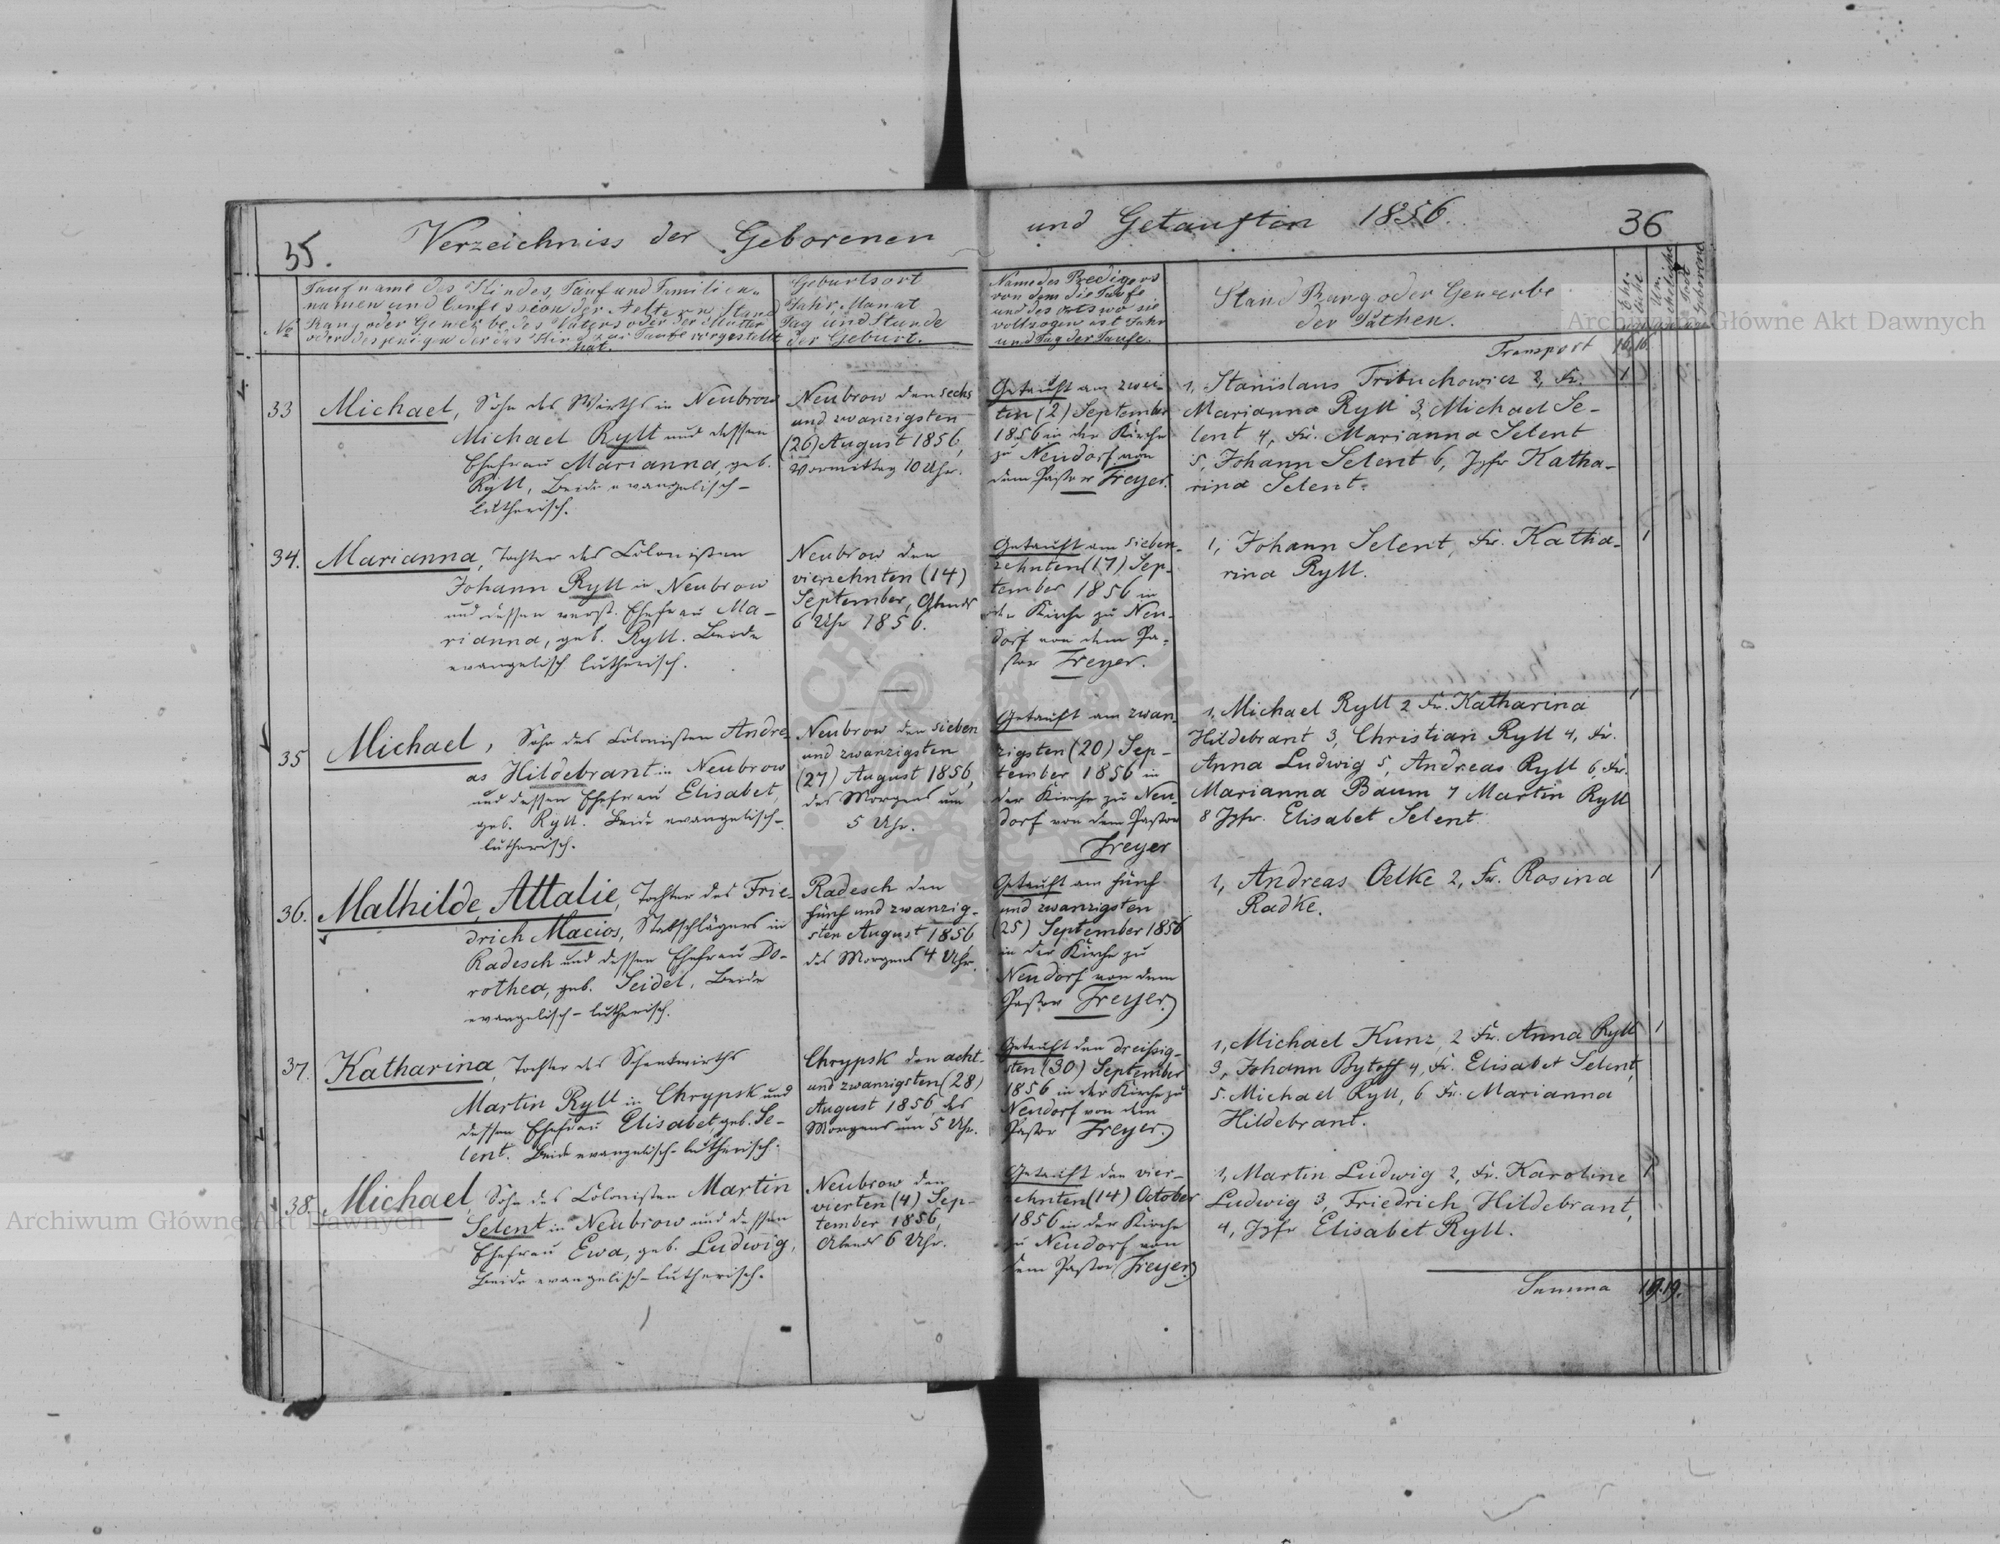 35.
Verzeichniss der Geborenen
und Getauften 1856.
36
No
Taufname des Kindes, Tauf und Familien-
namen und Confession der Aeltern, Stand
Rang oder Gewerbe des Vaters oder der Mutter
oder desjenigen der das Kind zur Taufe vorgestellt
hat.
Geburtsort
Jahr, Monat
Tag und Stunde
der Geburt.
Name des Predigers
von dem die Taufe
und des Orts wo sie
vollzogen ist Jahr
und Tag der Taufe.
Stand Rang oder Gewerbe
der Pathen.
Transport 16. 16.
33
Michael, Sohn des Wirths in Neubrow
Michael Ryll und dessen
Ehefrau Marianna, geb.
Ryll, Beide evangelisch-
lutherisch.
Neubrow den sechs
und zwanzigsten
(26) August 1856,
Vormittag 10 Uhr.
Getauft am zwei-
ten (2) September
1856 in der Kirche
zu Neudorf von
dem Pastor Freyer.
1, Stanislaus Tribuchowicz 2, Fr.
Marianna Ryll 3, Michael Se-
lent 4, Fr. Marianna Selent
5, Johann Selent 6, Jgfr Katha-
rina Selent.
1
34.
Marianna, Tochter des Colonisten
Johann Ryll in Neubrow
und dessen verst. Ehefrau Ma-
rianna, geb. Ryll. Beide
evangelisch lutherisch.
Neubrow den
vierzehnten (14)
September, Abends
6 Uhr 1856.
Getauft am sieben-
zehnten (17) Sep-
tember 1856 in
der Kirche zu Neu-
dorf von dem Pa-
stor Freyer.
1, Johann Selent, Fr. Katha-
rina Ryll.
1
35
Michael, Sohn des Colonisten Andre-
as Hildebrant in Neubrow
und dessen Ehefrau Elisabet,
geb. Ryll. Beide evangelisch-
lutherisch.
Neubrow den sieben
und zwanzigsten
(27) August 1856,
des Morgens um
5 Uhr.
Getauft am zwan-
zigsten (20) Sep-
tember 1856 in
der Kirche zu Neu-
dorf von dem Pastor
Freyer
1, Michael Ryll 2 Fr. Katharina
Hildebrant 3, Christian Ryll 4, Fr.
Anna Ludwig 5, Andreas Ryll 6, Fr.
Marianna Baum 7 Martin Ryll
8 Jgfr. Elisabet Selent
1
36.
Mathilde, Attalie, Tochter des Frie-
drich Macios, Stabschlägers in
Radesch und dessen Ehefrau Do-
rothea, geb. Seidel. Beide
evangelisch-lutherisch.
Radesch den
fünf und zwanzig-
sten August 1856
des Morgens 4 Uhr.
Getauft am fünf
und zwanzigsten
(25) September 1856
in der Kirche zu
Neudorf von dem
Pastor Freyer.
1, Andreas Oelke 2, Fr. Rosina
Radke.
1
37.
Katharina, Tochter des Schenkwirths
Martin Ryll in Chrypsk und
dessen Ehefrau Elisabet, geb. Se-
lent. Beide evangelisch-lutherisch.
Chrypsk den acht-
und zwanzigsten (28)
August 1856, des
Morgens um 5 Uhr.
Getauft den dreißig-
sten (30) September
1856 in der Kirche zu
Neudorf von dem
Pastor Freyer.
1, Michael Kunz, 2 Fr. Anna Ryll
3, Johann Bytoff 4, Fr. Elisabet Selent,
5. Michael Ryll, 6 Fr. Marianna
Hildebrant.
1
38.
Michael, Sohn des Colonisten Martin
Selent in Neubrow und dessen
Ehefrau Ewa, geb. Ludwig,
Beide evangelisch-lutherisch.
Neubrow den
vierten (4) Sep-
tember 1856,
Abends 6 Uhr.
Getauft den vier-
zehnten (14) October
1856 in der Kirche
zu Neudorf von
dem Pastor Freyer.
1, Martin Ludwig 2, Fr. Karoline
Ludwig 3, Friedrich Hildebrant,
4, Jgfr Elisabet Ryll.
1
Summa 19. 19.
Archiwum Główne Akt Dawnych
Archiwum Główne Akt Dawnych